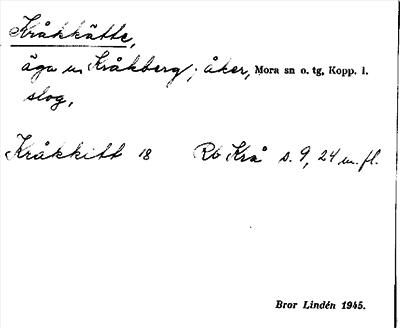 Kråkkätte,
äga u Kråkberg; åker, Mora sn o. tg, Kopp. l.
slog,
Kråkkitt 18 Rb Krå s. 9, 24 m. fl.
Bror Lindén 1945.